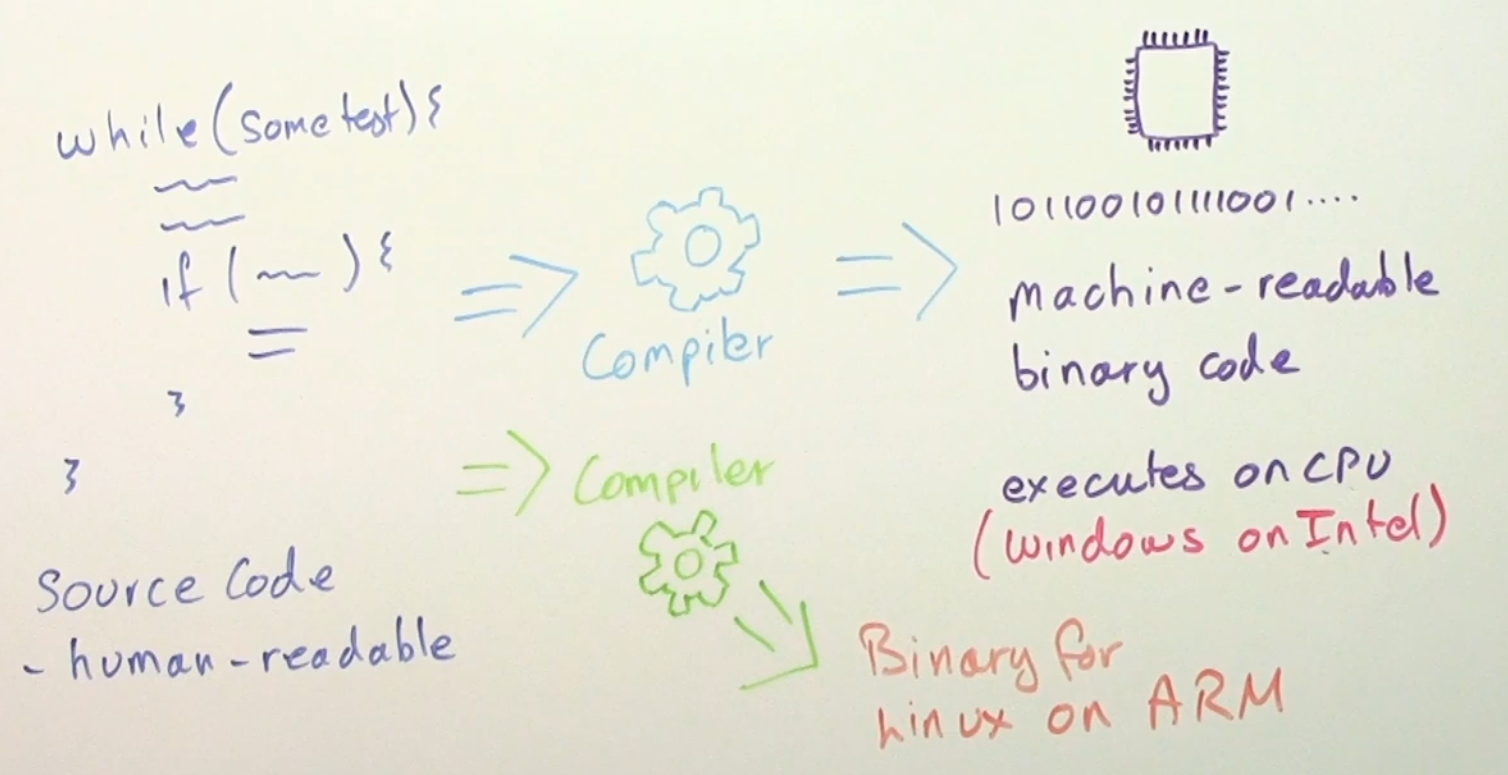 while(some test){
if ( ){
}
}
Source Code
- human-readable
Compiler
Compiler
101100101111001....
machine-readable
binary code
executes on CPU
(Windows on Intel)
Binary for
Linux on ARM